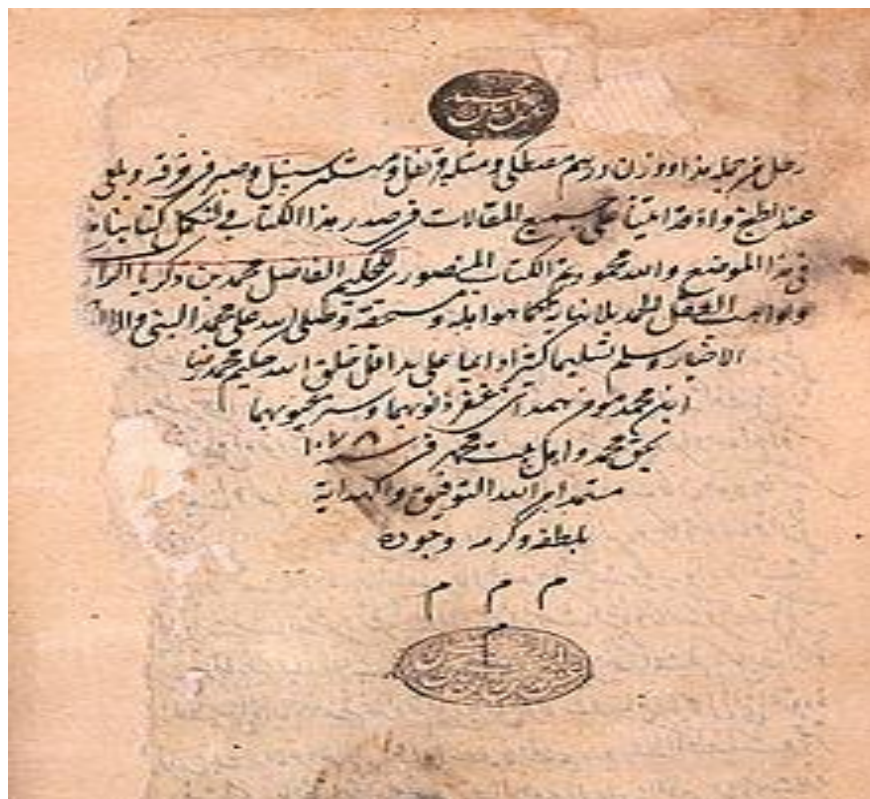 رجل من تجله هذا ووزن درهم مصطكى ومثله قرنفل ومثله سنبل وصر فى خرقة ويلقى
عند الطبخ واذ قد اتينا على جميع المقالات فى صدر هذا الكتاب ولنكمل كتابنا
فى هذا الموضع والله محمود تم الكتاب المنصورى للحكيم الفاضل محمد بن زكريا الراز
ولواهب العقل الحمد بلا نهاية كما هو اهله ومستحقه وصلى الله على محمد النبى واله
الاخيار وسلم تسليما كثيرا دايما على يد اقل خلق الله حكيم محمد رضا
ابن محمد همدانى غفر ذنوبهما وستر عيوبهما
بحق محمد واهل بيت محمد فى سنه ١٠٧٨
مستمدا من الله التوفيق والهداية
بلطفه وكرمه وجوده
م م م
م